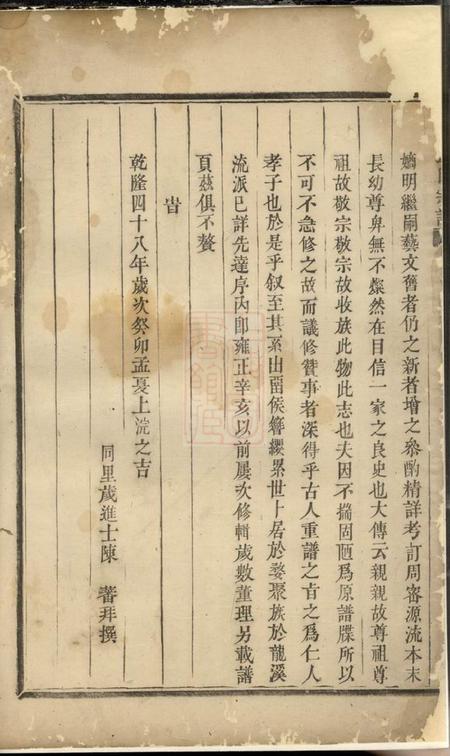 嫡明繼嗣藝文舊者仍之新者增之參酌精詳考訂周審源流本末
長幼尊卑無不燦然在目信一家之良史也大傳云親親故尊祖尊
祖故敬宗敬宗故收族此物此志也夫因不揣固陋爲原譜牒所以
不可不急修之故而議修贊事者深得乎古人重譜之旨之爲仁人
孝子也於是乎叙至其系出畱侯簪纓累世卜居於婺聚族於龍溪
流派已詳先達序內卽雍正辛亥以前屢次修輯歲數董理另載譜
頁茲俱不贅
旹
乾隆四十八年歲次癸卯孟夏上浣之吉
同里歲進士陳 蓍拜撰